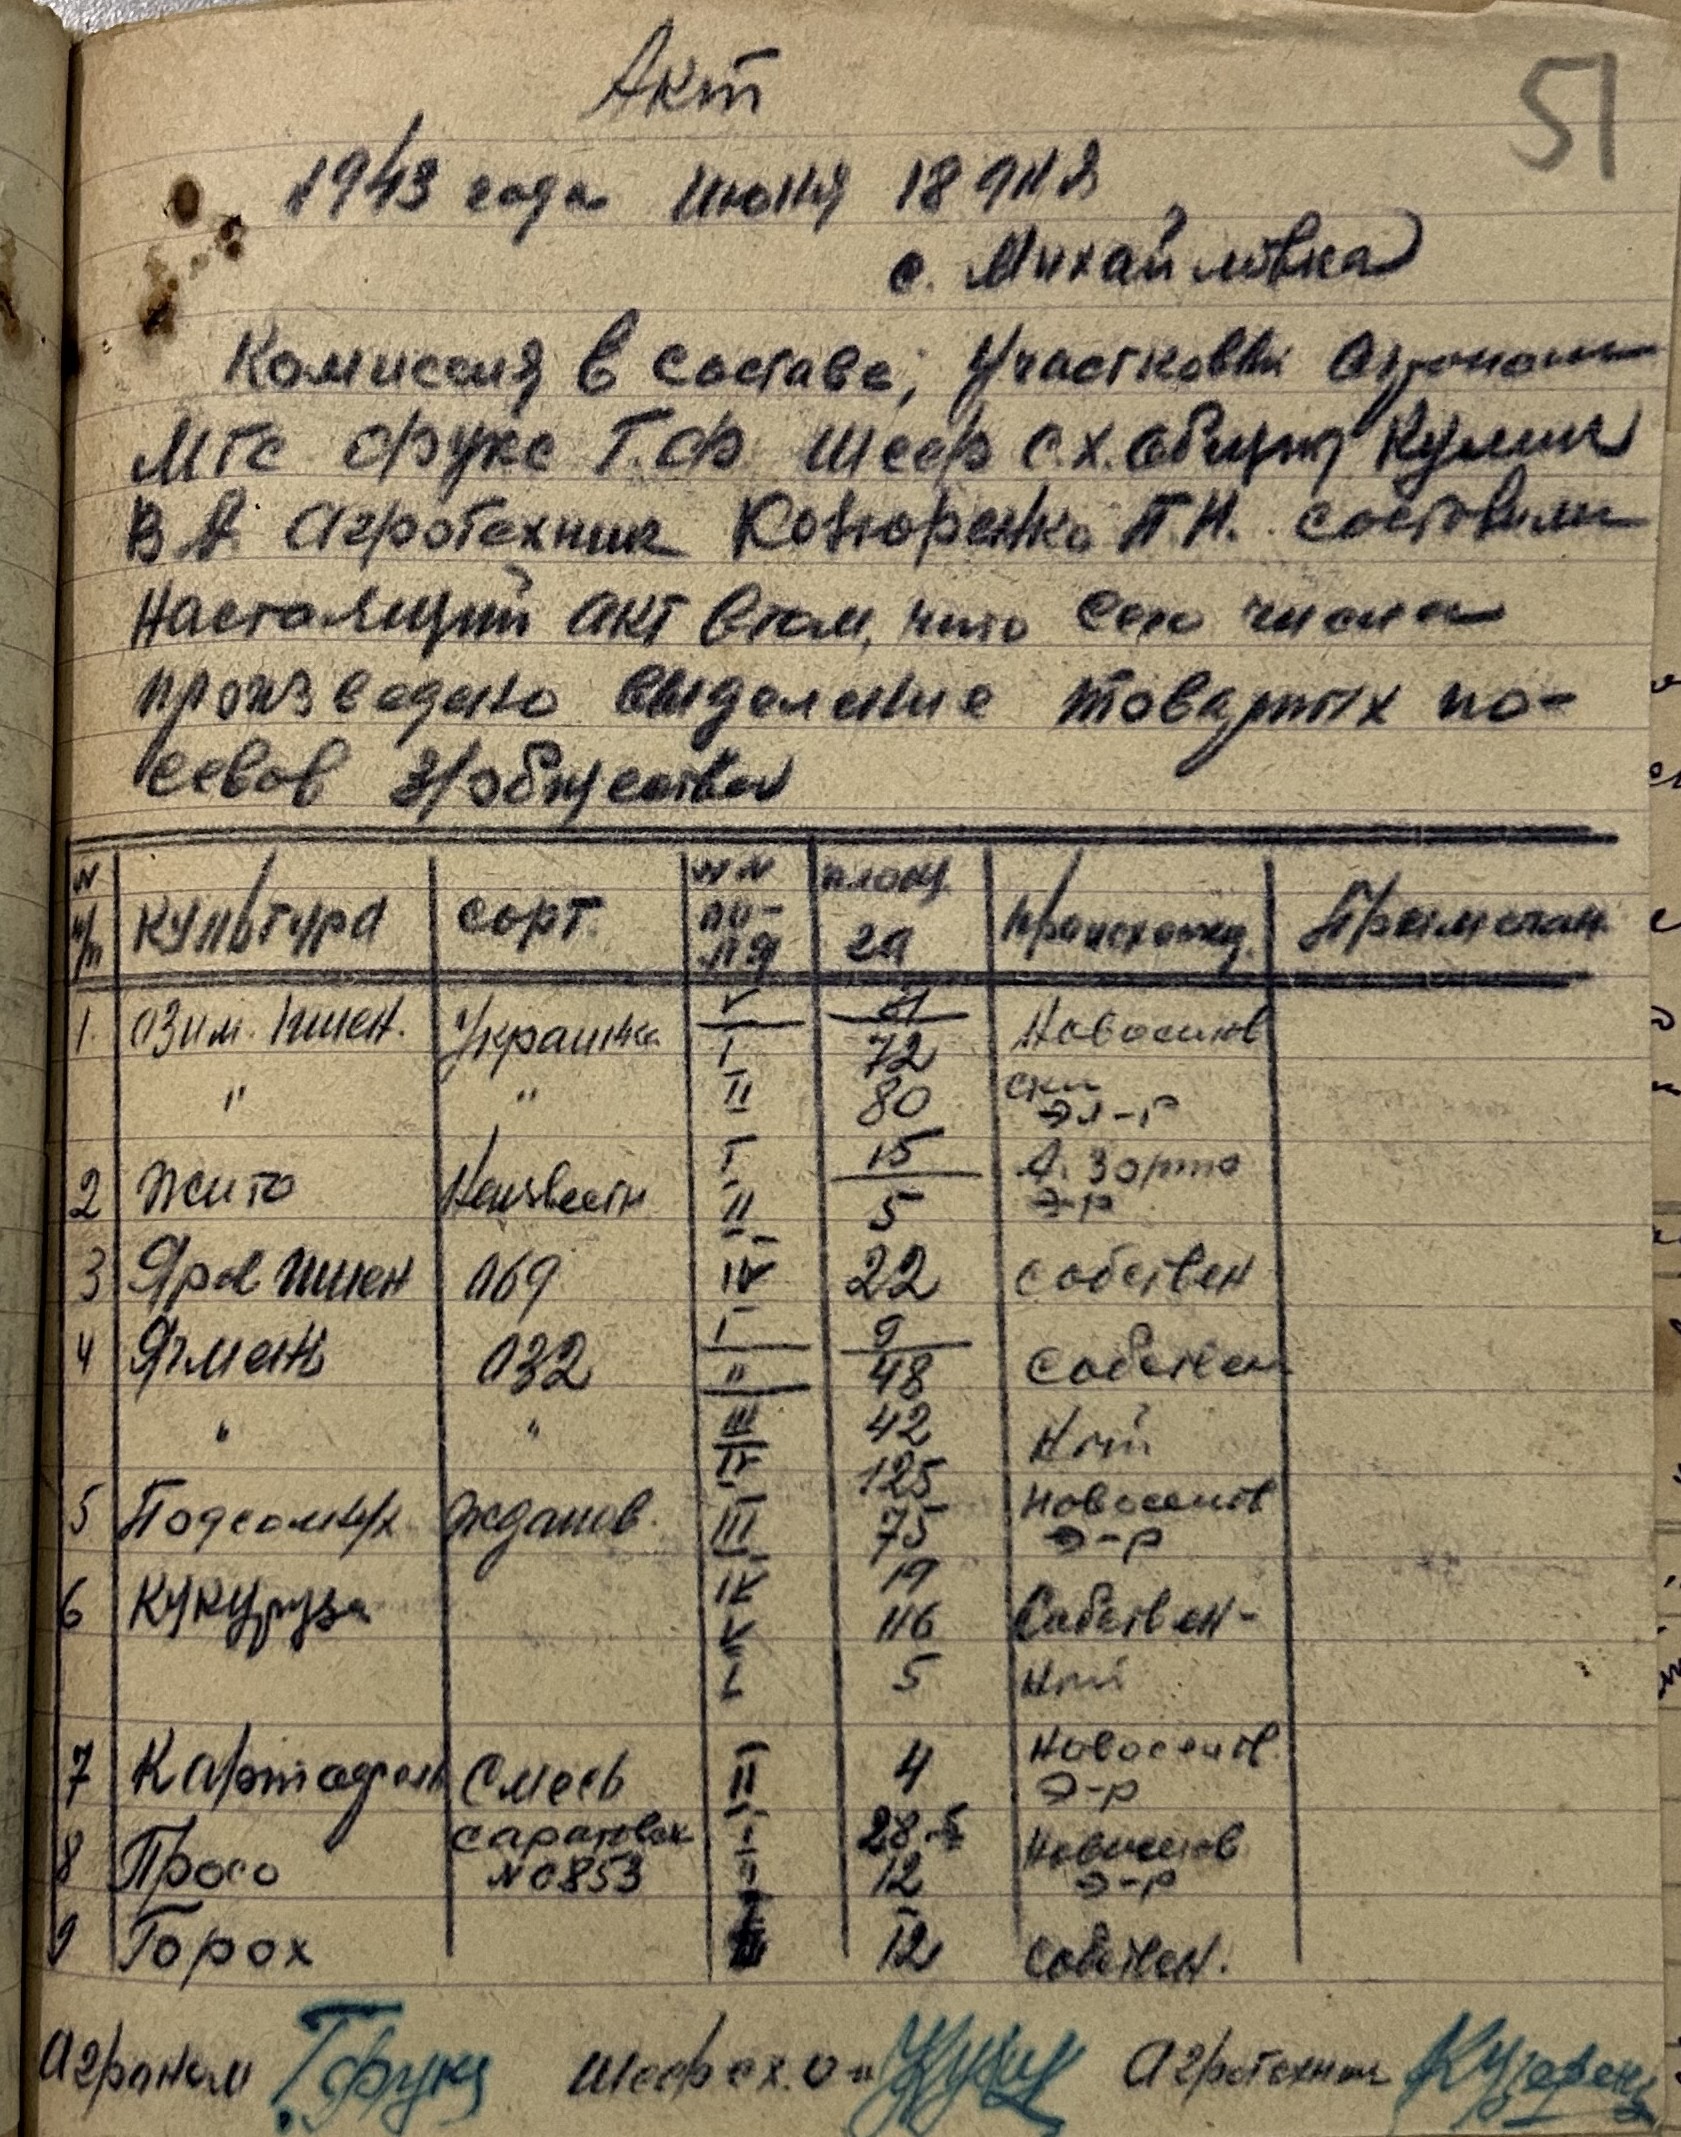 51
Акт
1943 года июня 18 дня
с. Михайловка
Комиссия в составе; Участковый Агроном
МТС Фукс Т.Ф. Шеф с.х. общин Кулиш
В А. Агротехник П.Н. составили
Настоящий акт втом, что сего числа
произведено выделение товарных по-
севов з/общества
№ п/п Культура сорт. №№ по-ля площ. га Происхожд. Примечан.
1. Озим. пшен. Украинка V I 72 Новоселов
" " II 80 ский Эл-р
2 Жито Неизвестн I II 15 5 Э-р
3 Яров пшен 069 IV 22 Собствен
4 Ячмень 032 I " 9 48 Собствен
" " III IV 42 125 Ный
5 Подсолнух Жданов. III 75 Новоселов Э-р
6 Кукуруза IV 19
V 116 Собствен-
I 5 Ный
7 Картофель Смесь II 4 Новоселов. Э-р
8 Просо Саратовск № 0853 I II 28.5 12 Новоселов Э-р
9 Горох 12 Собствен.
Агроном Т Фукс Шеф сх. о-н Кулиш Агротехник